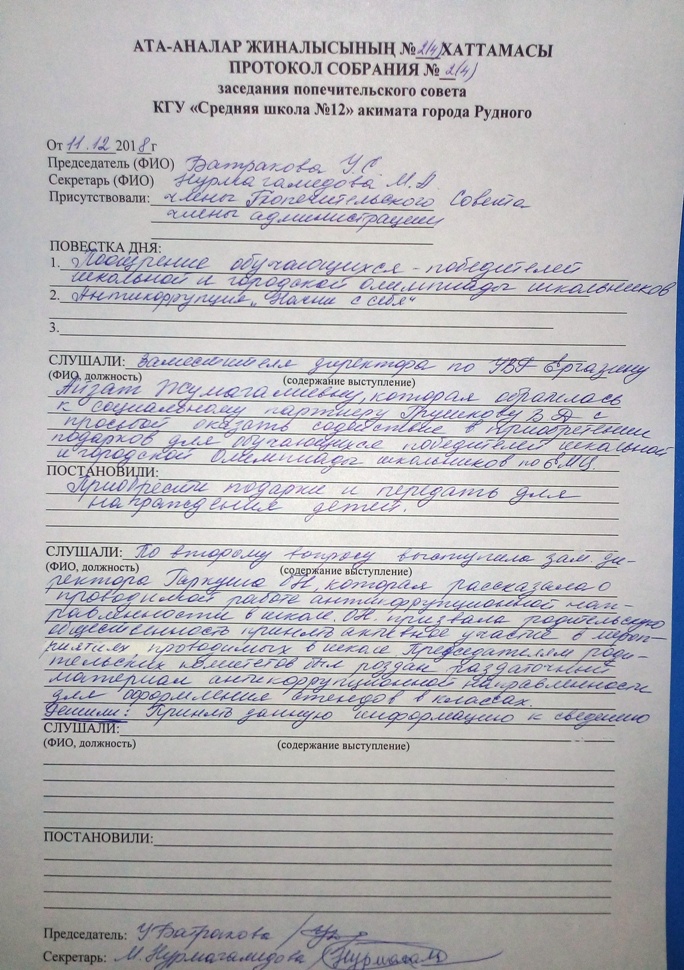 АТА-АНАЛАР ЖИНАЛЫСЫНЫҢ № 2(4) ХАТТАМАСЫ
ПРОТОКОЛ СОБРАНИЯ № 2(4)
заседания попечительского совета
КГУ «Средняя школа №12» акимата города Рудного
От 11.12 2018г
Председатель (ФИО) Батракова У.С
Секретарь (ФИО) Нурмагамедова М.А
Присутствовали: члены Попечительского Совета
члены администрации
ПОВЕСТКА ДНЯ:
1. Поощрение обучающихся - победителей
школьной и городской олимпиады школьников
2. Антикоррупция „Начни с себя“
3.
СЛУШАЛИ: Заместителя директора по УВР Ергазину
(ФИО, должность) (содержание выступление)
Айзат Жумагалиевну, которая обратилась
к социальному партнеру с
просьбой оказать содействие в приобретении
подарков для обучающихся победителей школьной
и городской олимпиады школьников по
ПОСТАНОВИЛИ:
Приобрести подарки и передать для
награждения детей.
СЛУШАЛИ: По второму вопросу выступила зам. ди-
(ФИО, должность) (содержание выступление)
ректора Гаркуша ОН, которая рассказала о
проводимой работе антикоррупционной нап-
равленности в школе. О.Н. призвала родительскую
общественность принять активное участие в мероп-
риятиях проводимых в школе. Председателям роди-
тельских комитетов был роздан раздаточный
материал антикоррупционной направленности
для оформления стендов в классах.
Решили: Принять данную информацию к сведению
СЛУШАЛИ:
(ФИО, должность) (содержание выступление)
ПОСТАНОВИЛИ:
Председатель: У Батракова
Секретарь: М. Нурмагамедова